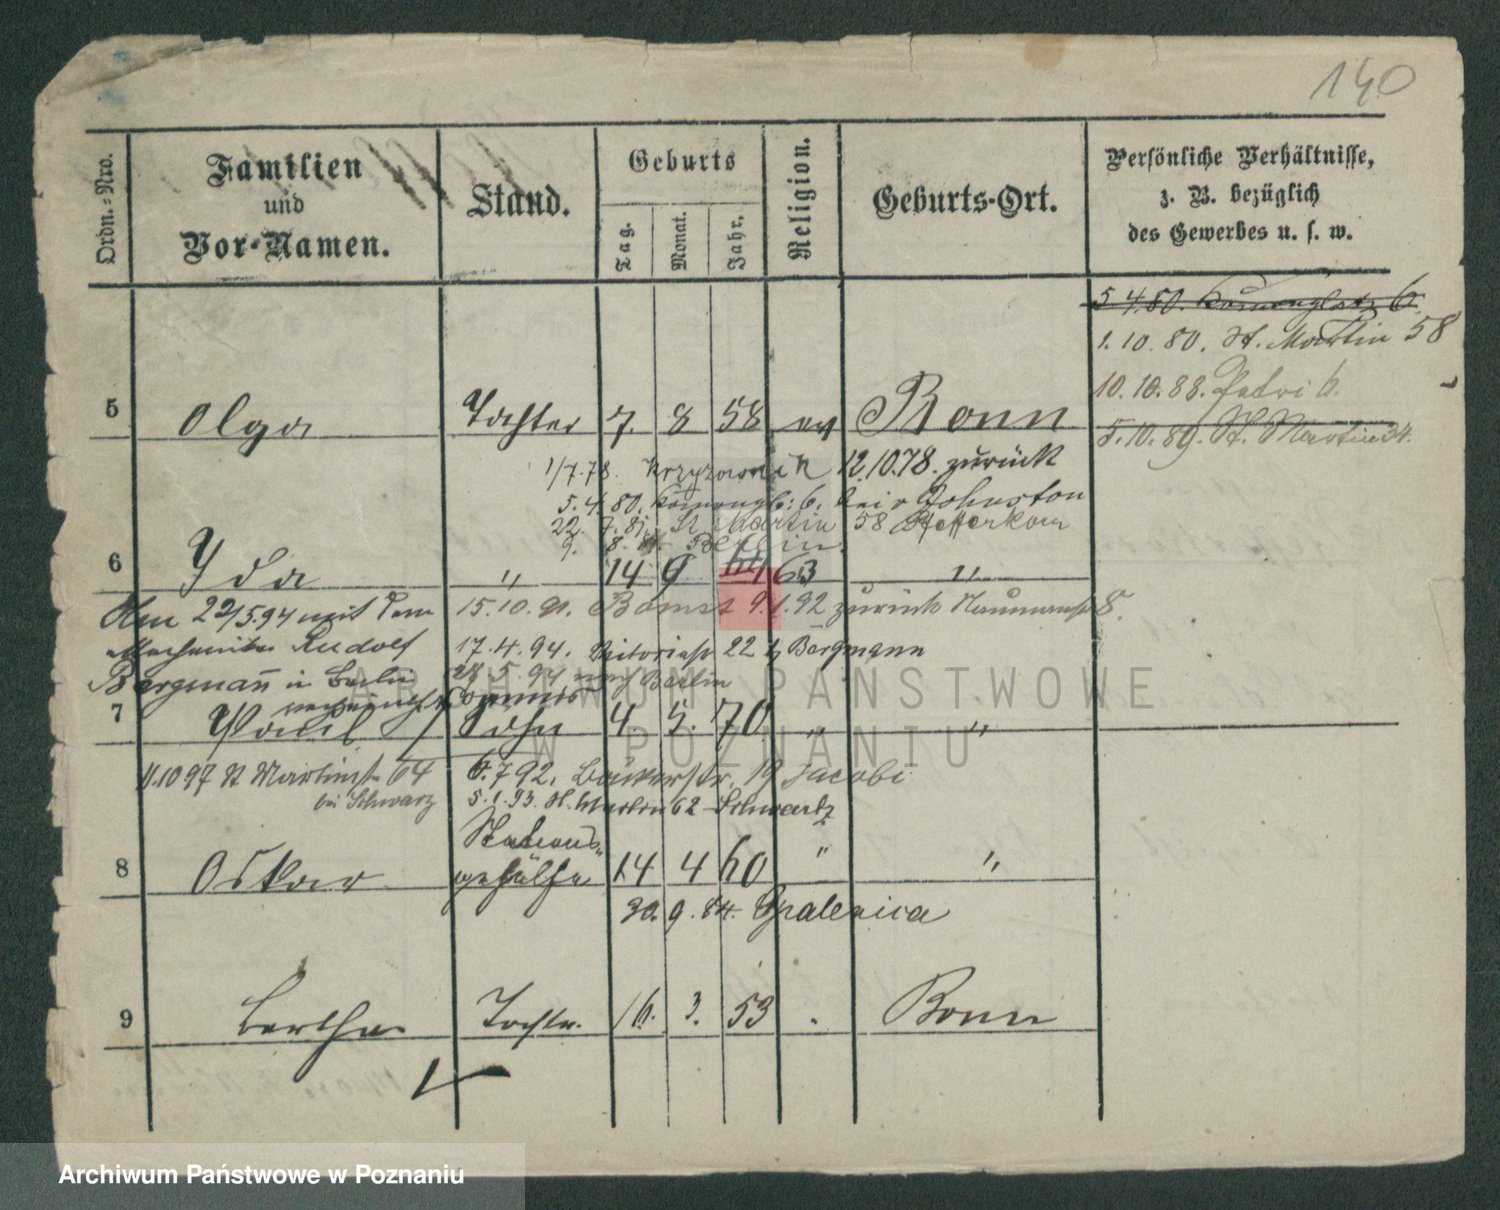 140
Ordn.-Nro.
Familien
und
Vor-Namen.
Stand.
Geburts
Tag.
Monat.
Jahr.
Religion.
Geburts-Ort.
Persönliche Verhältnisse,
z. B. bezüglich
des Gewerbes u. s. w.
5.4.80. 6.
1.10.80. St. Martin 58
10.10.88. Petri 6.
5.10.89. St. Martin 34.
5 Olga Tochter 7. 8 58 ev Bonn
1/7.78. Krzyzownik 12.10.78. zurück
5.4.80. 6. bei Johnston
22.7.81. St Martin 58 Pfefferkorn
9. 8. Berlin
6 Ida " 14 9 64 63 "
Am 22/5.94 mit dem 15.10.91. Bomst 9.1.92 zurück 8.
Mechaniker Rudolf 17.4.94. Victoriastr 22 b Bergmann
Bergmann in Berlin 28.5.94 nach Berlin
verheiratet Commis
7 Paul Sohn 4 5. 70 " "
11.10 97 St Martinstr 64 6.7.92. Bäckerstr. 19 Jacobi
bei Schwarz 5.1.93. St. Martin 62 Schwartz
Stations-
8 Oskar gehülfe 14 4 60 " "
30.9.84. Opalenica
9 Bertha Tochter. 16. 3. 53 . Bonn
ARCHIWUM PAŃSTWOWE
W POZNANIU
Archiwum Państwowe w Poznaniu